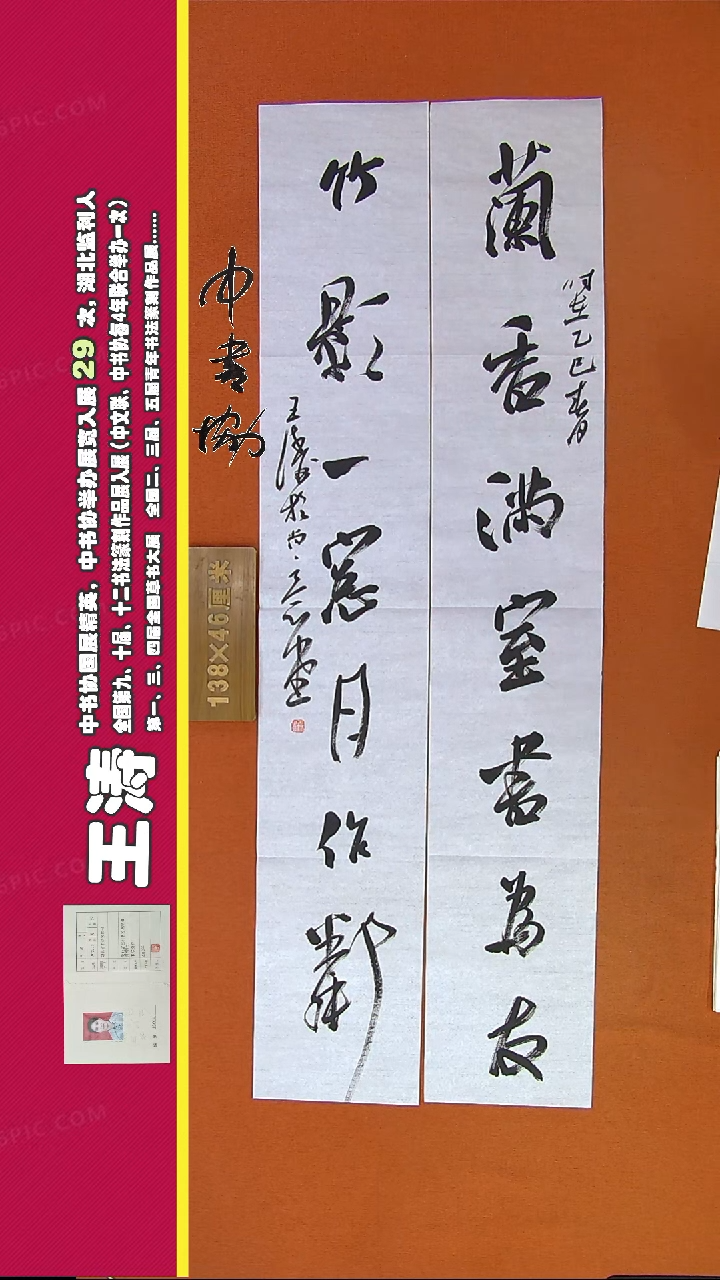 蘭香满室書為友
時在乙巳春
竹影一窓月作鄰
王濤於
中書協
138×46厘米
王涛
中书协国展精英，中书协举办展览入展29次，湖北监利人
全国第九、十届、十二书法篆刻作品展入展（中文联、中书协每4年联合举办一次）
第一、三、四届全国草书大展 全国二、三届、五届青年书法篆刻作品展......